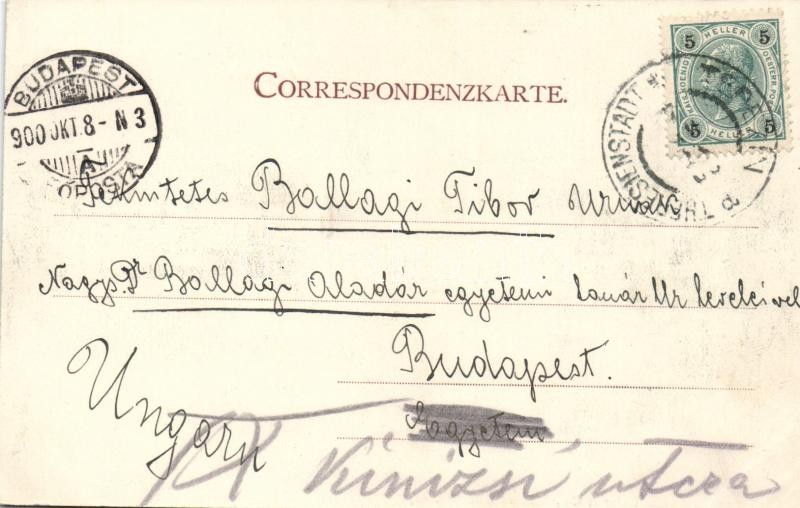 CORRESPONDENZKARTE.
5 HELLER 5
KAIS. KOENIGL. OESTERR. POST
5 HELLER 5
THERESIENSTADT
BUDAPEST
900 OKT. 8 - N 3
Tekintetes Ballagi Tibor Urnak
Nagys. Dr Ballagi Aladár egyetemi tanár Ur leveleivel
Budapest.
Egyetem
Ungarn
IX Kinizsi utcza